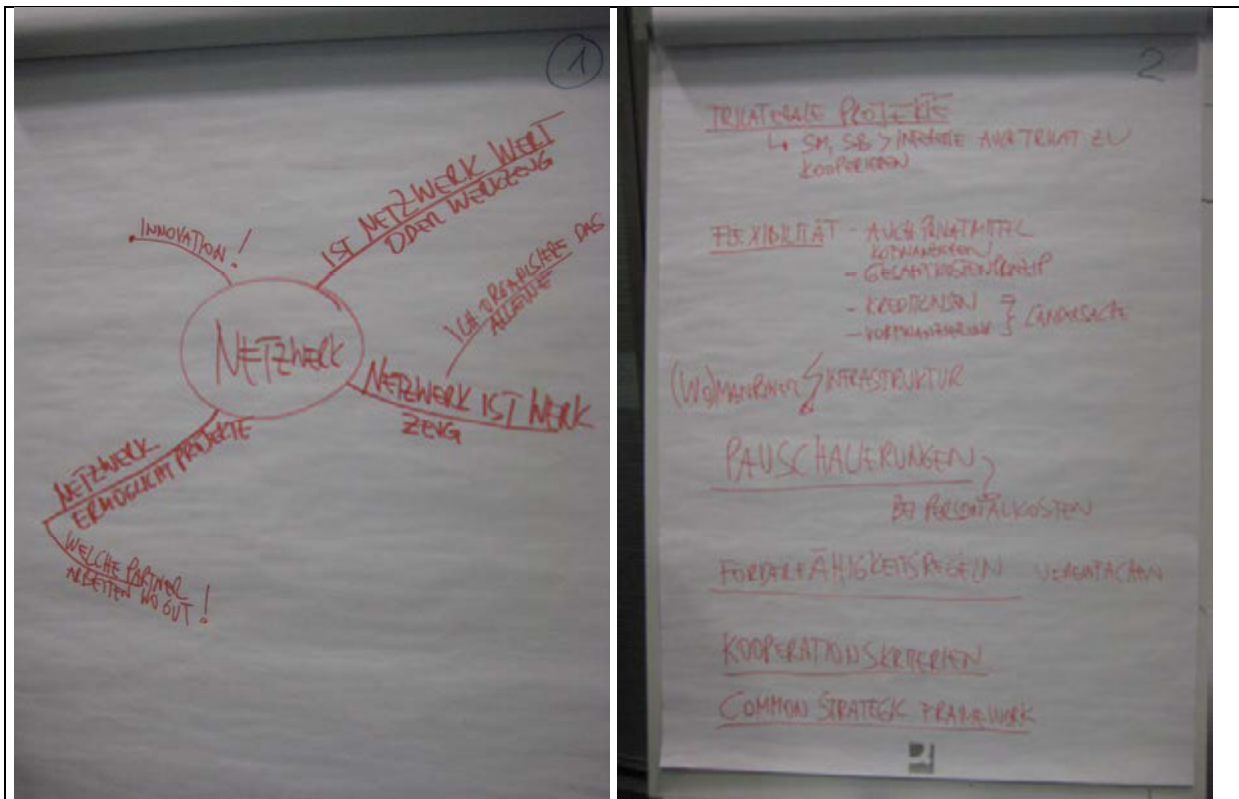 1
INNOVATION!
IST NETZWERK WERT
ODER WERKZEUG
ICH ORGANISIERE DAS
ALLEINE
NETZWERK
NETZWERK IST WERK
ZEUG
NETZWERK
ERMÖGLICHT PROJEKTE
WELCHE PARTNER
ARBEITEN WO GUT!
2
TRILATERALE PROJEKTE
↳ SM, > AUCH TRILAT ZU
KOOPERIEREN
FLEXIBILITÄT - AUCH PRIVATMITTEL
KOFINANZIEREN
- GESAMTKOSTENPRINZIP
- LÄNDERSACHE
- VORFINANZIERUNG
(WO)MANPOWER INFRASTRUKTUR
PAUSCHALIERUNGEN
BEI PERSONALKOSTEN
FÖRDERFÄHIGKEITSREGELN VEREINFACHEN
KOOPERATIONSKRITERIEN
COMMON STRATEGIC FRAMEWORK